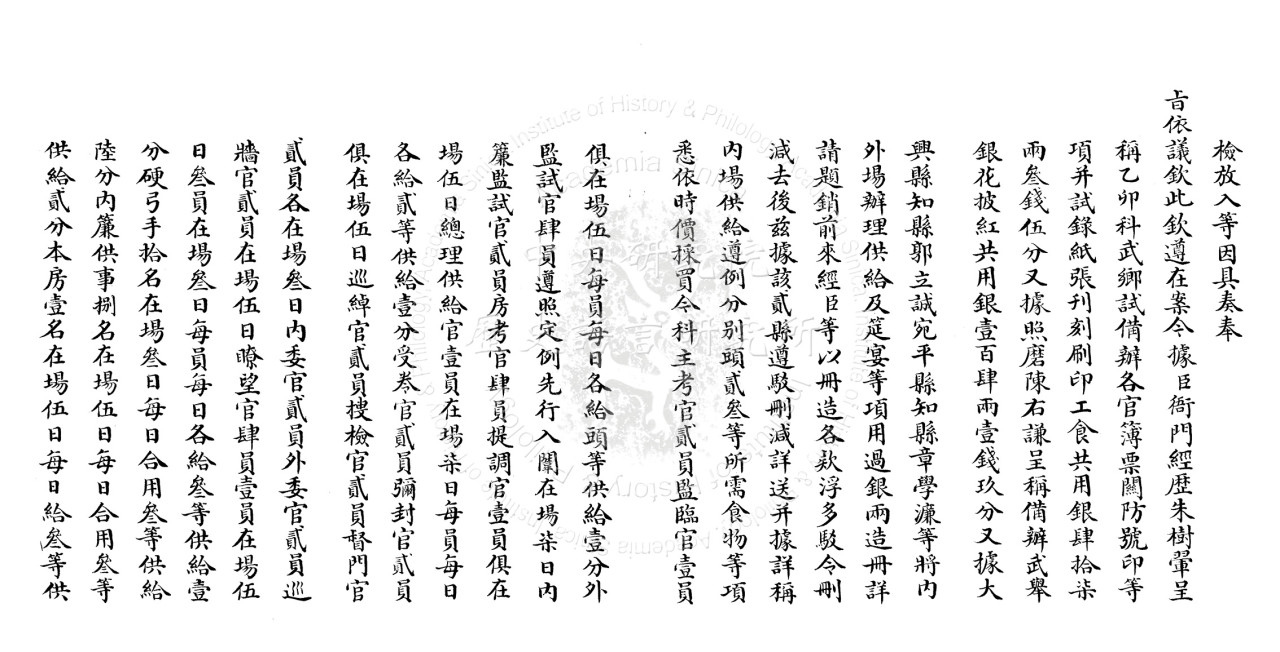 檢放入等因具奏奉
㫖依議欽此欽遵在案今據臣衙門經歴朱樹翬呈
稱乙卯科武鄉試備辦各官簿票關防號印等
項并試錄紙張刊刻刷印工食共用銀肆拾柒
兩叁錢伍分又據照磨陳右謙呈稱備辦武舉
銀花披紅共用銀壹百肆兩壹錢玖分又據大
興縣知縣郭立誠宛平縣知縣章學濂等將内
外場辦理供給及筵宴等項用過銀兩造冊詳
請題銷前來經臣等以冊造各欵浮多駁令刪
減去後茲據該貳縣遵駁刪減詳送并據詳稱
内場供給遵例分别頭貳叁等所需食物等項
悉依時價採買今科主考官貳員監臨官壹員
俱在場伍日每員每日各給頭等供給壹分外
監試官肆員遵照定例先行入闈在場柒日内
簾監試官貳員房考官肆員提調官壹員俱在
場伍日總理供給官壹員在場柒日每員每日
各給貳等供給壹分受卷官貳員彌封官貳員
俱在場伍日巡綽官貳員搜檢官貳員督門官
貳員各在場叁日内委官貳員外委官貳員巡
牆官貳員在場伍日瞭望官肆員壹員在場伍
日叁員在場叁日每員每日各給叁等供給壹
分硬弓手拾名在場叁日每日合用叁等供給
陸分内簾供事捌名在場伍日每日合用叁等
供給貳分本房壹名在場伍日每日給叁等供
中央研究院
歷史語言研究所
Institute of History & Philology, Academia Sinica